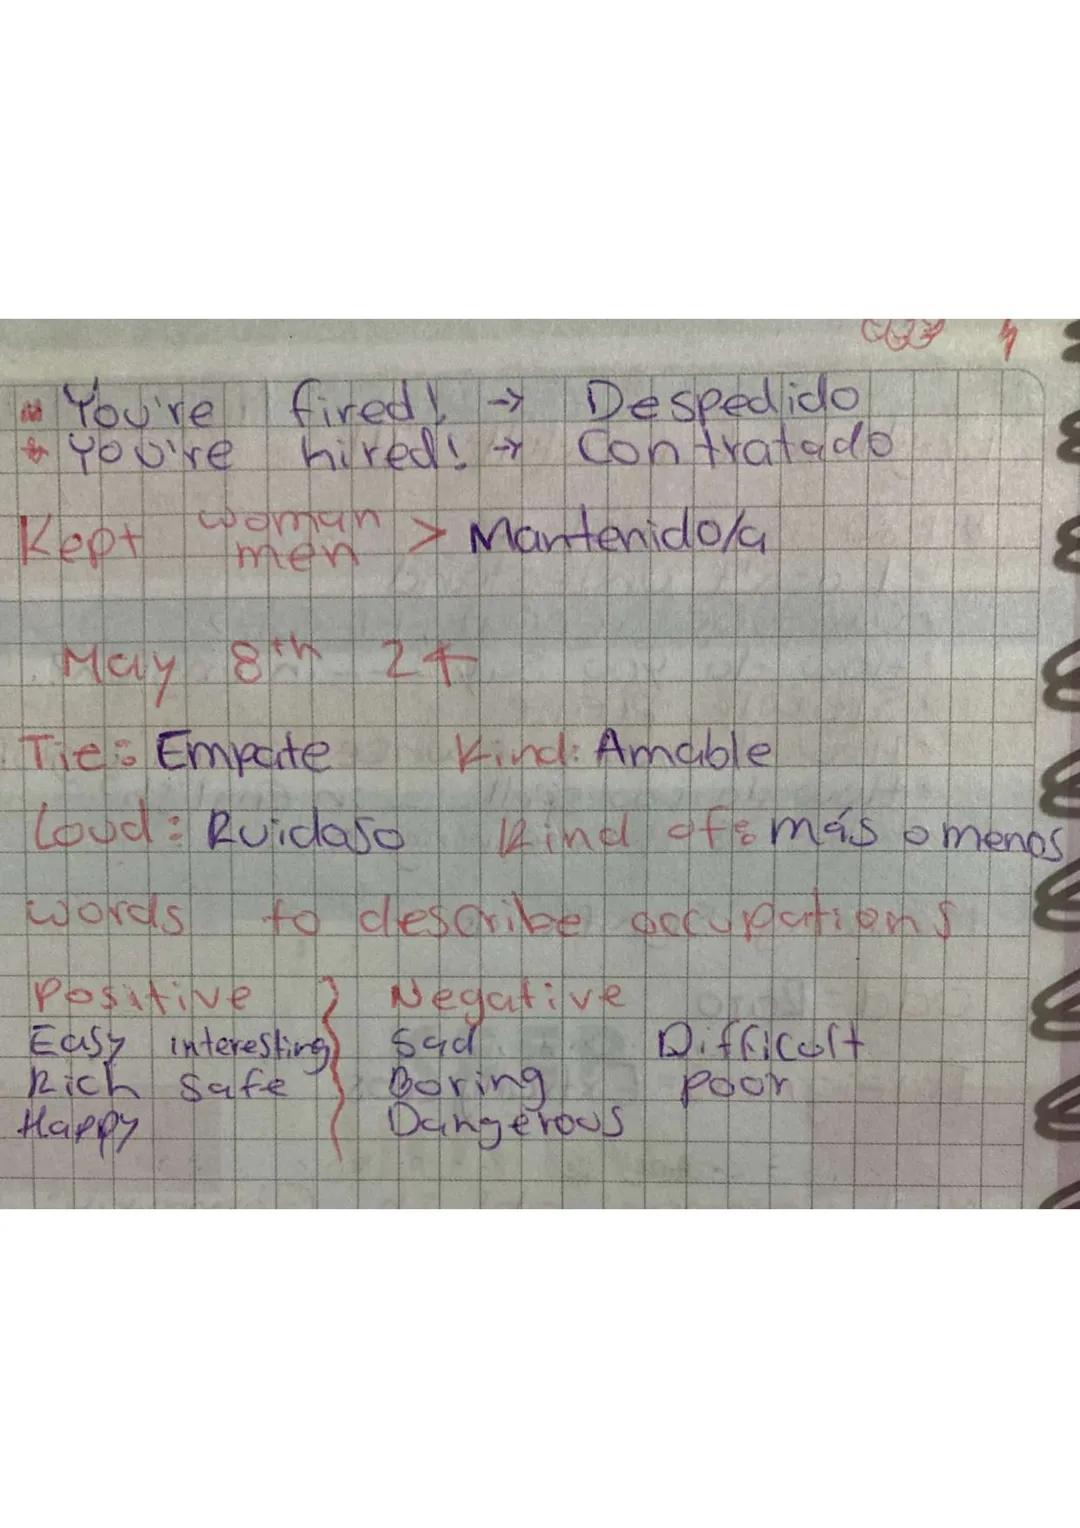 * You're fired! → Despedido
* You're hired! → Contratado
Kept woman
men > Mantenido/a
May 8th 24
Tie: Empate Kind: Amable
Loud: Ruidoso Kind of: más o menos
words to describe occupations
Positive } Negative
Easy interesting Sad Difficult
Rich Safe Boring poor
Happy Dangerous